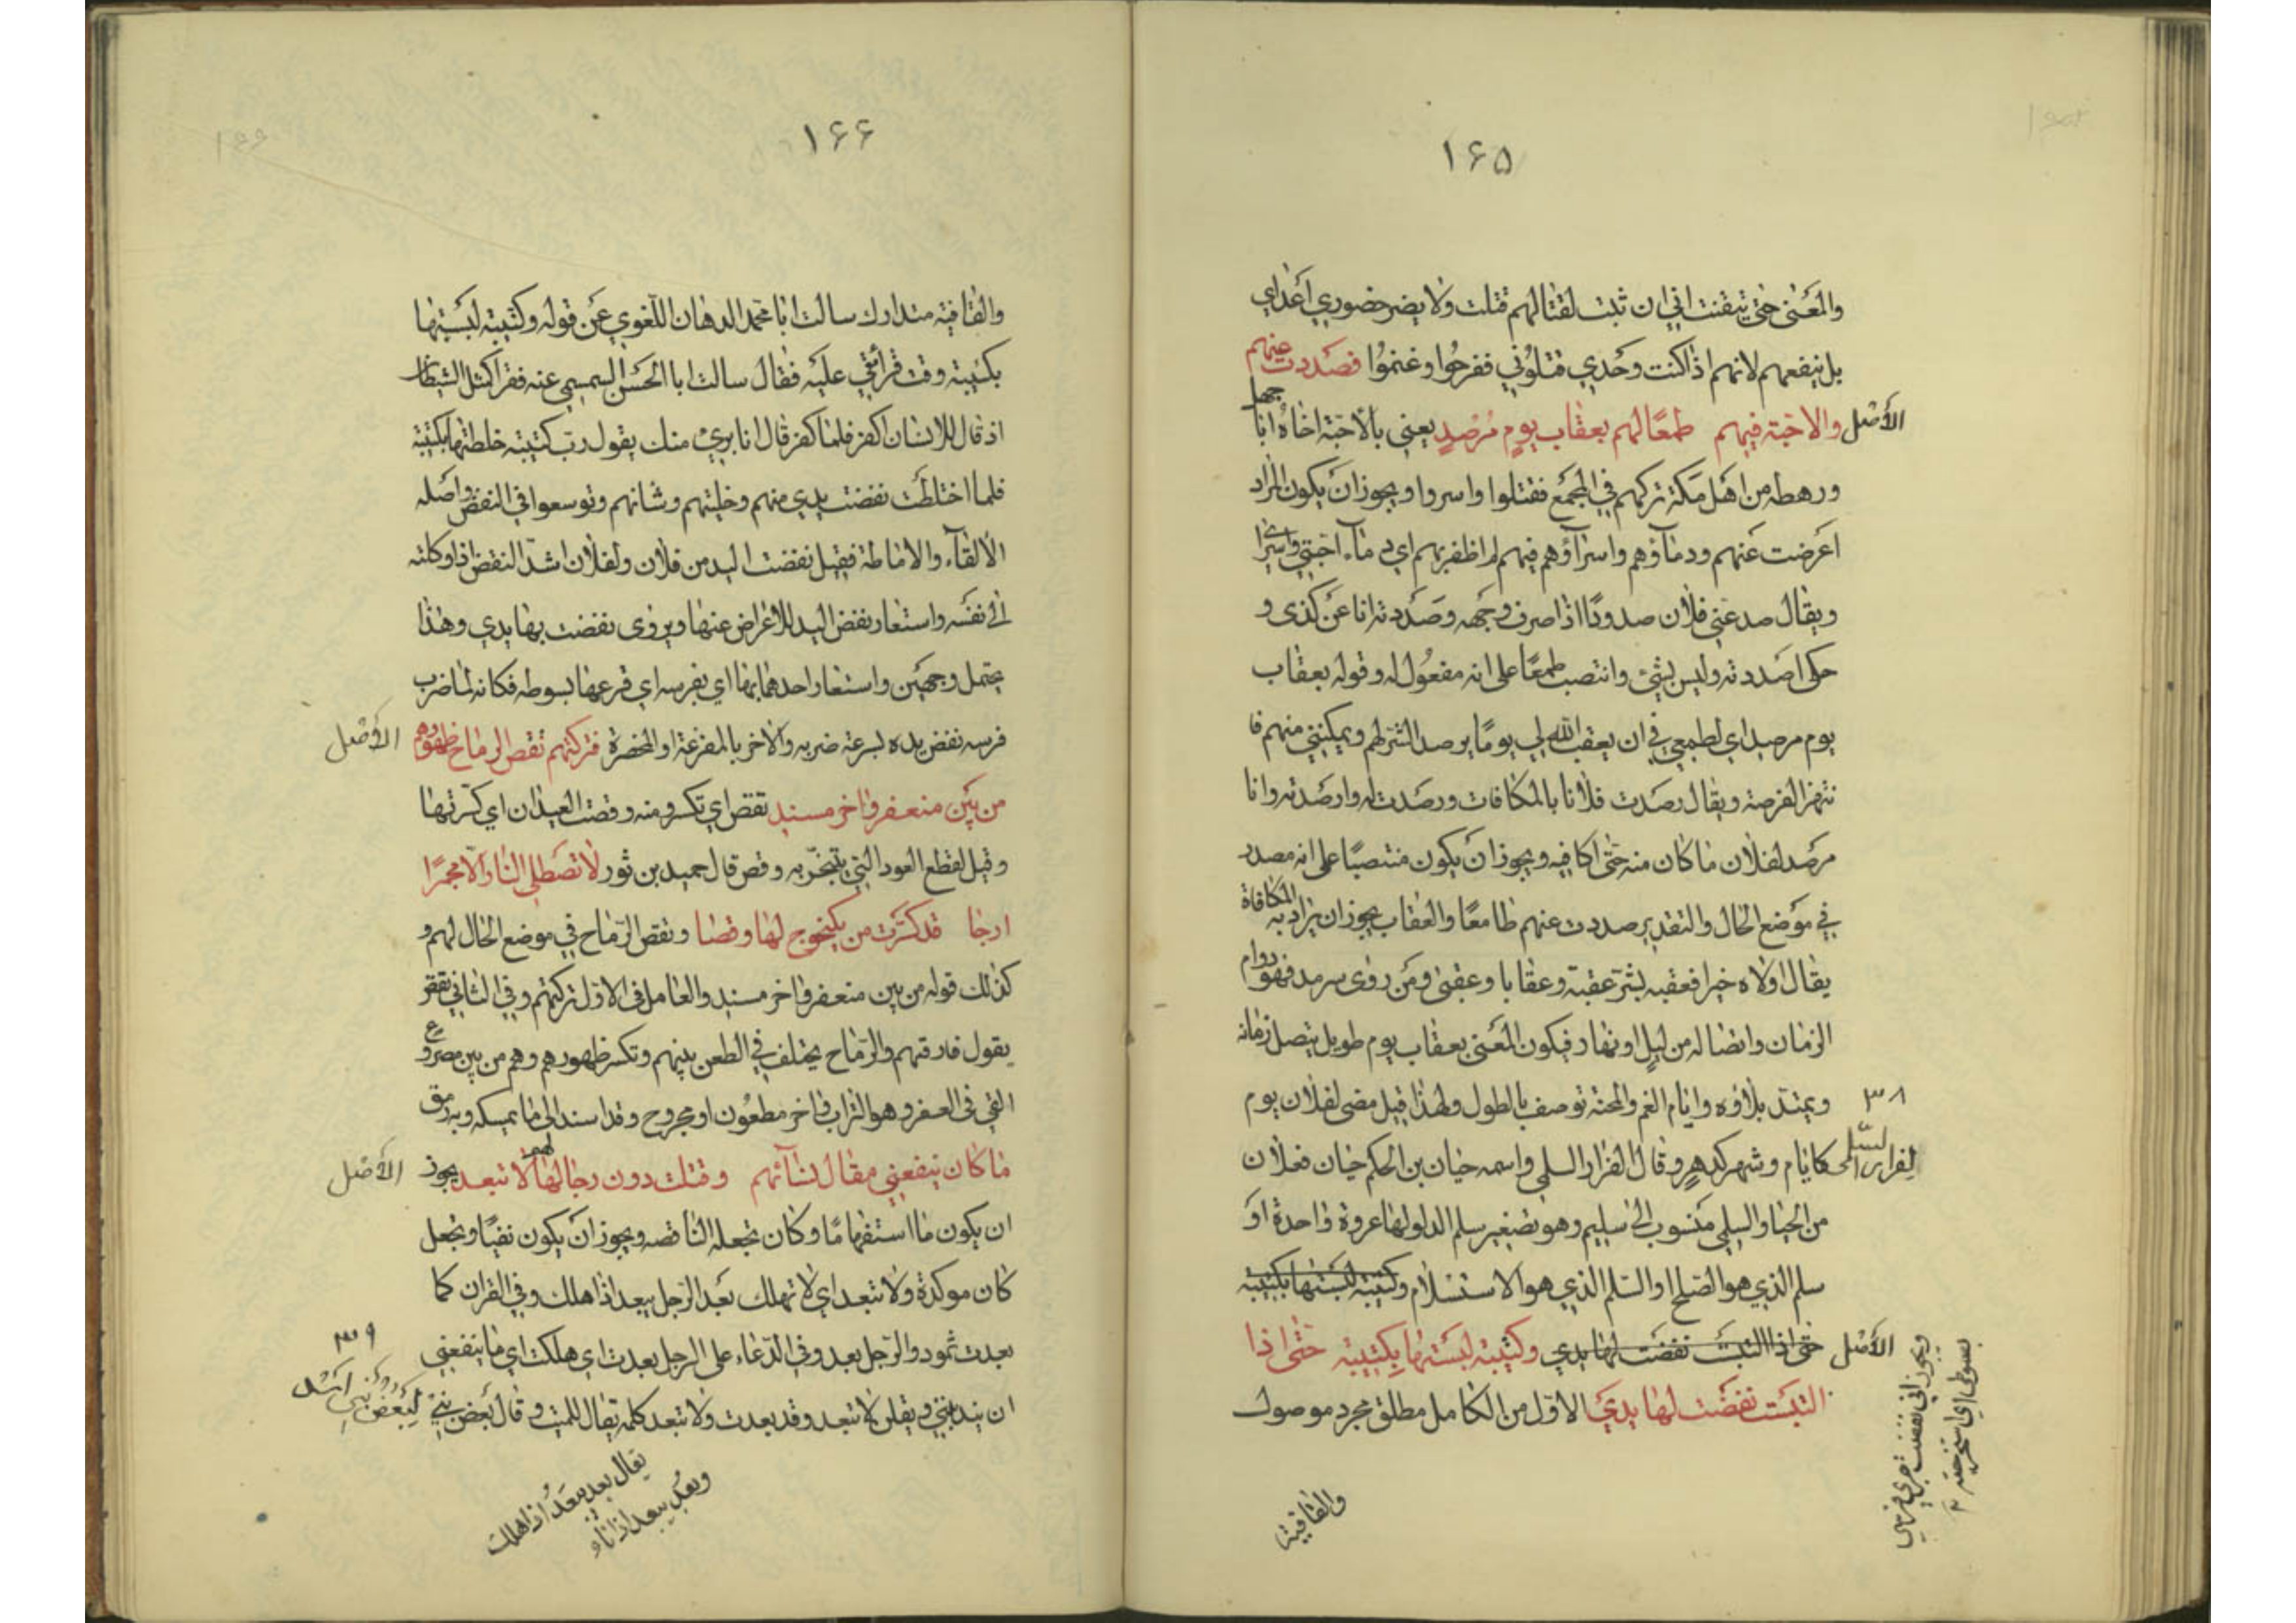 ۱۶۵
والمعنى حتى تيقنت اني ان ثبت لقتالهم قتلت ولا يضر حضوري اعداي
بل ينفعهم لانهم اذا كنت وحدي قتلوني ففرحوا وغنموا فصددت عنهم
الأصل
والاحبة فيهم طمعا لهم بعقاب يوم مرصد يعنى بالاحبة اخاه ابا جهل
ورهطه من اهل مكة تركهم في المجمع فقتلوا واسروا ويجوز ان يكون المراد
اعرضت عنهم ودماؤهم واسراؤهم فيهم لم اظفر بهم اي دماء احبتي واسرا
ويقال صد عني فلان صدودا اذا صرف وجهه وصددته انا عن كذى و
حكى اصددته وليس بشئ وانتصب طمعا على انه مفعول له وقوله بعقاب
يوم مرصد اي لطمعي في ان يعقب الله لي يوما يرصد الشر لهم ويمكنني منهم فا
نتهز الفرصة ويقال رصدت فلانا بالمكافات ورصدت له وارصدته وانا
مرصد لفلان ما كان منه حتى اكافيه ويجوز ان يكون منتصبا على انه مصدر
في موضع الحال والتقدير صددت عنهم طامعا والعقاب يجوز ان يراد به المكافاة
يقال اولاه خيرا فعقبه بشر عقبة وعقابا وعقبى ومن روى سرمد فهو دوام
الزمان واتصاله من ليل او نهار فيكون المعنى بعقاب يوم طويل يتصل زمانه
۳۸
ويمتد بلاؤه وايام الغم والمحنة توصف بالطول ولهذا قيل مضى لفلان يوم
لفرار السلمي
كايام وشهر كدهر وقال الفرار السلمي واسمه حيان بن الحكم حيان فعلان
من الحيا والسلمي منسوب الى سليم وهو تصغير سلم الدلو لها عروة واحدة او
سلم الذي هو الصلح او السلم الذي هو الاستسلام وكتيبة لبستها بكتيبة
الأصل
حتى اذا التبست نفضت لها يدي وكتيبة لبستها بكتيبة حتى اذا
التبست نفضت لها يدي الاول من الكامل مطلق مجرد موصول
والقافية
۱۶۶
والقافية متدارك سالت ابا محمد الدهان اللغوي عن قوله وكتيبة لبستها
بكتيبة وقت قرأتي عليه فقال سالت ابا الحسن السمسمي عنه فقرأ كمثل الشيطان
اذ قال للانسان اكفر فلما كفر قال انا بريئ منك يقول رب كتيبة خلطتها بكتيبة
فلما اختلطت نفضت يدي منهم وخليتهم وشانهم وتوسعوا في النفض واصله
الالقاء والاماطة فقيل نفضت اليد من فلان ولفلان اشد النفض اذا وكلته
الى نفسه واستعار نفض اليد للاعراض عنها ويروى نفضت بها يدي وهذا
يحتمل وجهين واستعار احدهما بها اي بفرسه اي قرعها بسوطه فكانه لما ضرب
فرسه نفض يده لسرعة ضربه والاخر بالمقرعة او المخصرة فتركتهم تقص الرماح ظهورهم
الأصل
من بين منعفر واخر مسند تقص اي تكسر ومنه وقصت العيدان اي كسرتها
وقيل لقطع العود التي يتبخر به وقص قال حميد بن ثور لا تصطلي النار الا مجمرا
ارجا قد كسرت من يلنجوج لها وقصا وتقص الرماح في موضع الحال لهم و
كذلك قوله من بين منعفر واخر مسند والعامل في الاول تركتهم وفي الثاني تقص
يقول فارقتهم والرماح يختلف في الطعن بينهم وتكسر ظهورهم وهم من بين مصروع
القي في العفر وهو التراب واخر مطعون او مجروح وقد اسند الى ما يمسكه وبه رمق
الأصل
ما كان ينفعني مقال نسائهم وقتلت دون رجالها لا تبعد يجوز
ان يكون ما استفهاما وكان تجعله الناقصه ويجوز ان يكون نفيا وتجعل
كان موكدة ولا تبعد اي لا تهلك بعد الرجل يبعد اذا هلك وفي القران كما
۳۹
بعدت ثمود والرجل بعد وفي الدعاء على الرجل بعدت اي هلكت اي ما ينفعني
ان يندبنني ويقلن لا تبعد وقد بعدت ولا تبعد كلمة يقال للميت وقال بعض بني
لبعض بني اسد
يقال بعد يبعد اذا هلك
وبعد يبعد اذا ناء